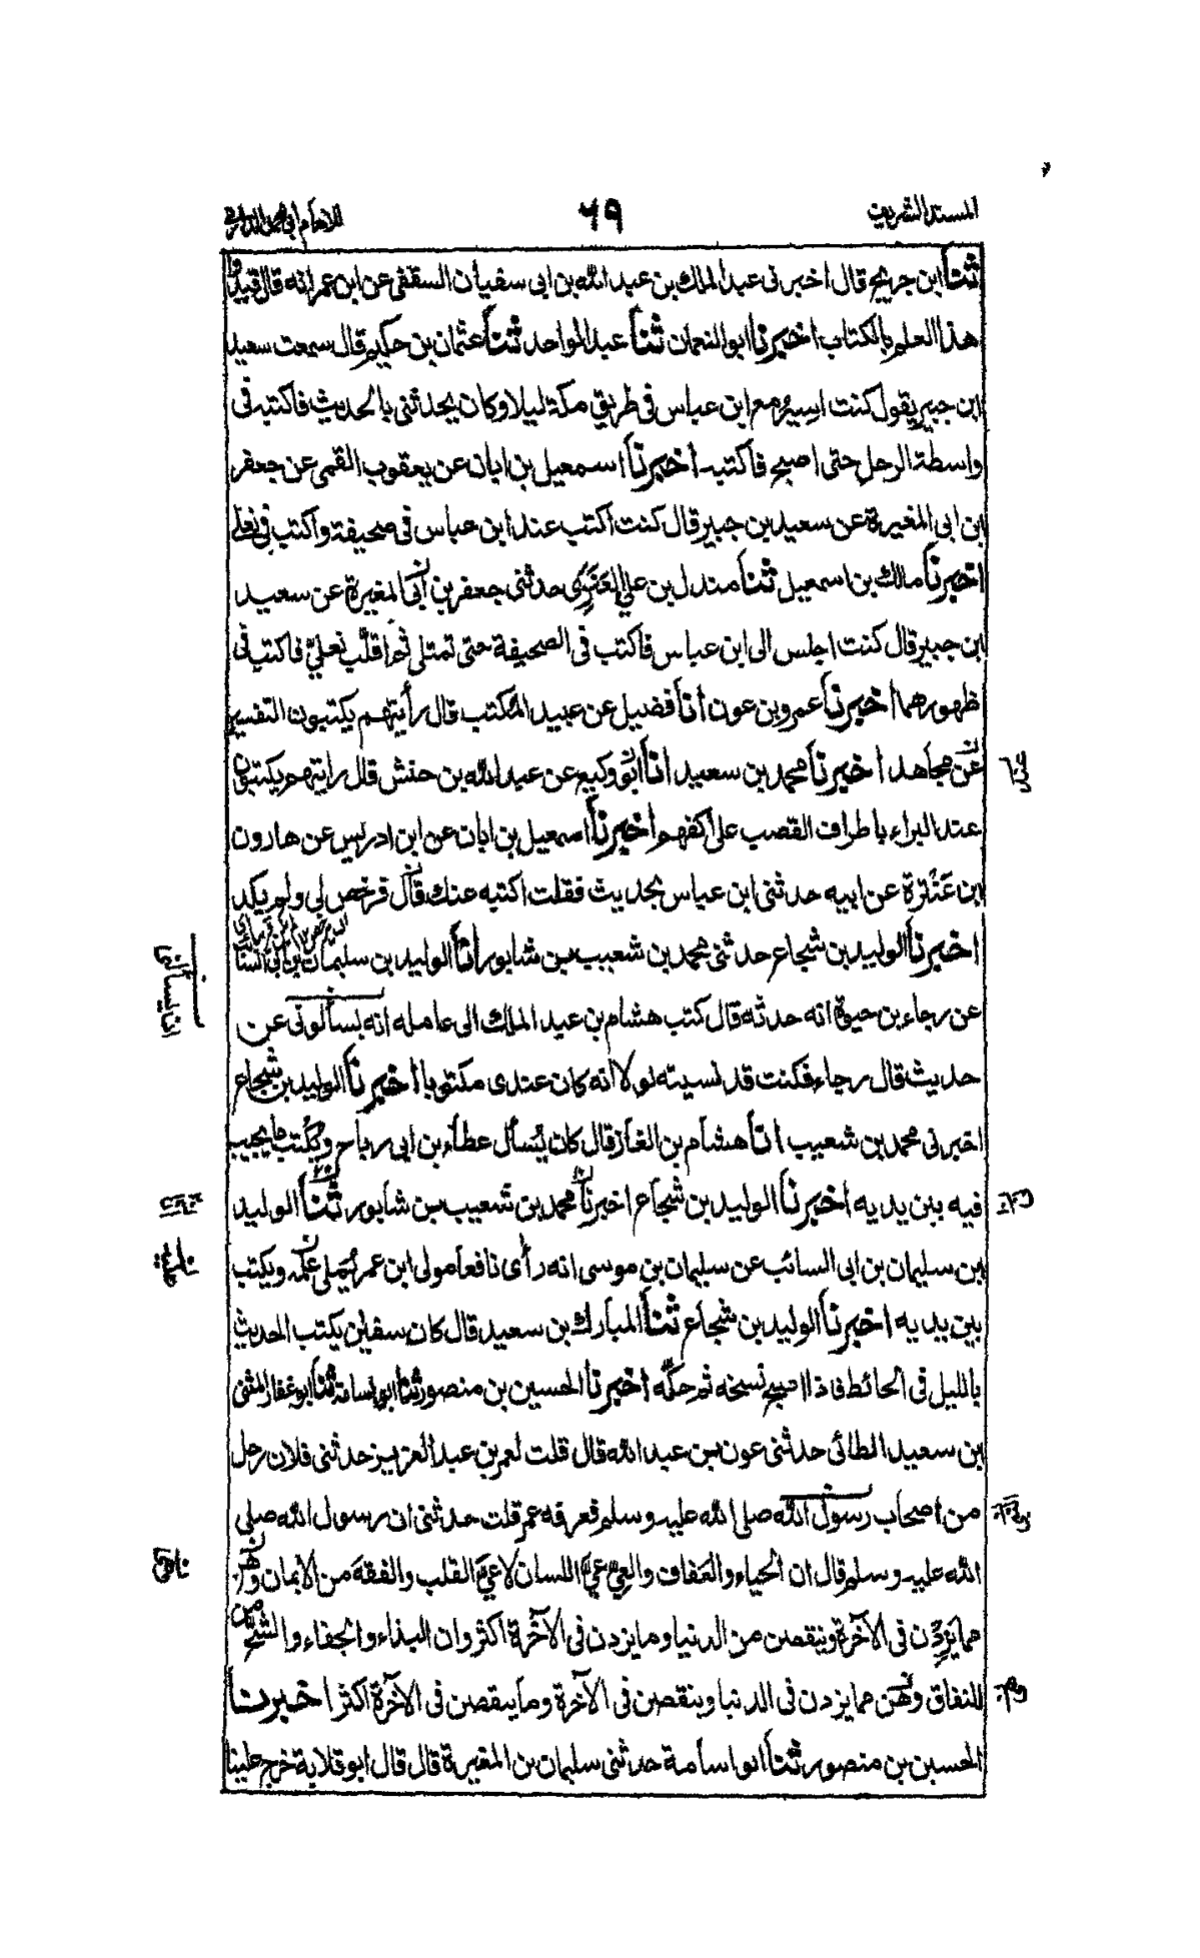 المسند الشريف ٦٩ للامام ابى محمد الدارمى
ثنا ابن جريج قال اخبرنى عبد الملك بن عبد الله بن ابى سفيان الثقفى عن ابن عمر انه قال قيدوا
هذا العلم بالكتاب اخبرنا ابو النعمان ثنا عبد الواحد ثنا عثمان بن حكيم قال سمعت سعيد
ابن جبير يقول كنت اسير مع ابن عباس فى طريق مكة ليلا وكان يحدثنى بالحديث فاكتبه فى
واسطة الرحل حتى اصبح فاكتبه اخبرنا اسمعيل بن ابان عن يعقوب القمى عن جعفر
بن ابى المغيرة عن سعيد بن جبير قال كنت اكتب عند ابن عباس فى صحيفة واكتب فى نعلى
اخبرنا مالك بن اسمعيل ثنا مندل بن على العَنَزِى حدثنى جعفر بن ابى المغيرة عن سعيد
ابن جبير قال كنت اجلس الى ابن عباس فاكتب فى الصحيفة حتى تمتلى ثم اقلب نعلىّ فاكتب فى
ظهورهما اخبرنا عمرو بن عون أنا فضيل عن عبيد المكتب قال رأيتهم يكتبون التفسير
عن مجاهد اخبرنا محمد بن سعيد انا ابو وكيع عن عبد الله بن حنش قال رايتهم يكتبون
عند البراء باطراف القصب على اكفهم اخبرنا اسمعيل بن ابان عن ابن ادريس عن هارون
ابن عَنْتَرة عن ابيه حدثنى ابن عباس بحديث فقلت اكتبه عنك قال فرخص لى ولم يكد
اخبرنا الوليد بن شجاع حدثنى محمد بن شعيب بن شابور انا الوليد بن سليمان بن ابى السائب
عن رجاء بن حيوة انه حدثه قال كتب هشام بن عبد الملك الى عامله انه يسألونى عن
حديث قال رجاء فكنت قد نسيته لولا انه كان عندى مكتوبا اخبرنا الوليد بن شجاع
اخبرنى محمد بن شعيب انا هشام بن الغاز قال كان يُسأل عطاء بن ابى رباح ويُكتب ما يجيب
فيه بين يديه اخبرنا الوليد بن شجاع اخبرنا محمد بن شعيب بن شابور ثنا الوليد
بن سليمان بن ابى السائب عن سليمان بن موسى انه رأى نافعا مولى ابن عمر يُملى علمه ويكتب
بين يديه اخبرنا الوليد بن شجاع ثنا المبارك بن سعيد قال كان سفيان يكتب الحديث
بالليل فى الحائط فاذا اصبح نسخه ثم حكّه اخبرنا الحسين بن منصور ثنا ابو اسامة ثنا ابو غفار المثنى
بن سعيد الطائى حدثنى عون بن عبد الله قال قلت لعمر بن عبد العزيز حدثنى فلان رجل
من اصحاب رسول الله صلى الله عليه وسلم فعرفه عمر قلت حدثنى ان رسول الله صلى
الله عليه وسلم قال ان الحياء والعفاف والعِىّ عِىّ اللسان لا عِىّ القلب والفقه من الايمان وهن
مما يزِدْن فى الآخرة وينقصن من الدنيا وما يزدن فى الآخرة اكثر وان البذاء والجفاء والشح من
النفاق وهن مما يزدن فى الدنيا وينقصن فى الآخرة وما ينقصن فى الآخرة اكثر اخبرنا
الحسين بن منصور ثنا ابو اسامة حدثنى سليمان بن المغيرة قال قال ابو قلابة خرج علينا